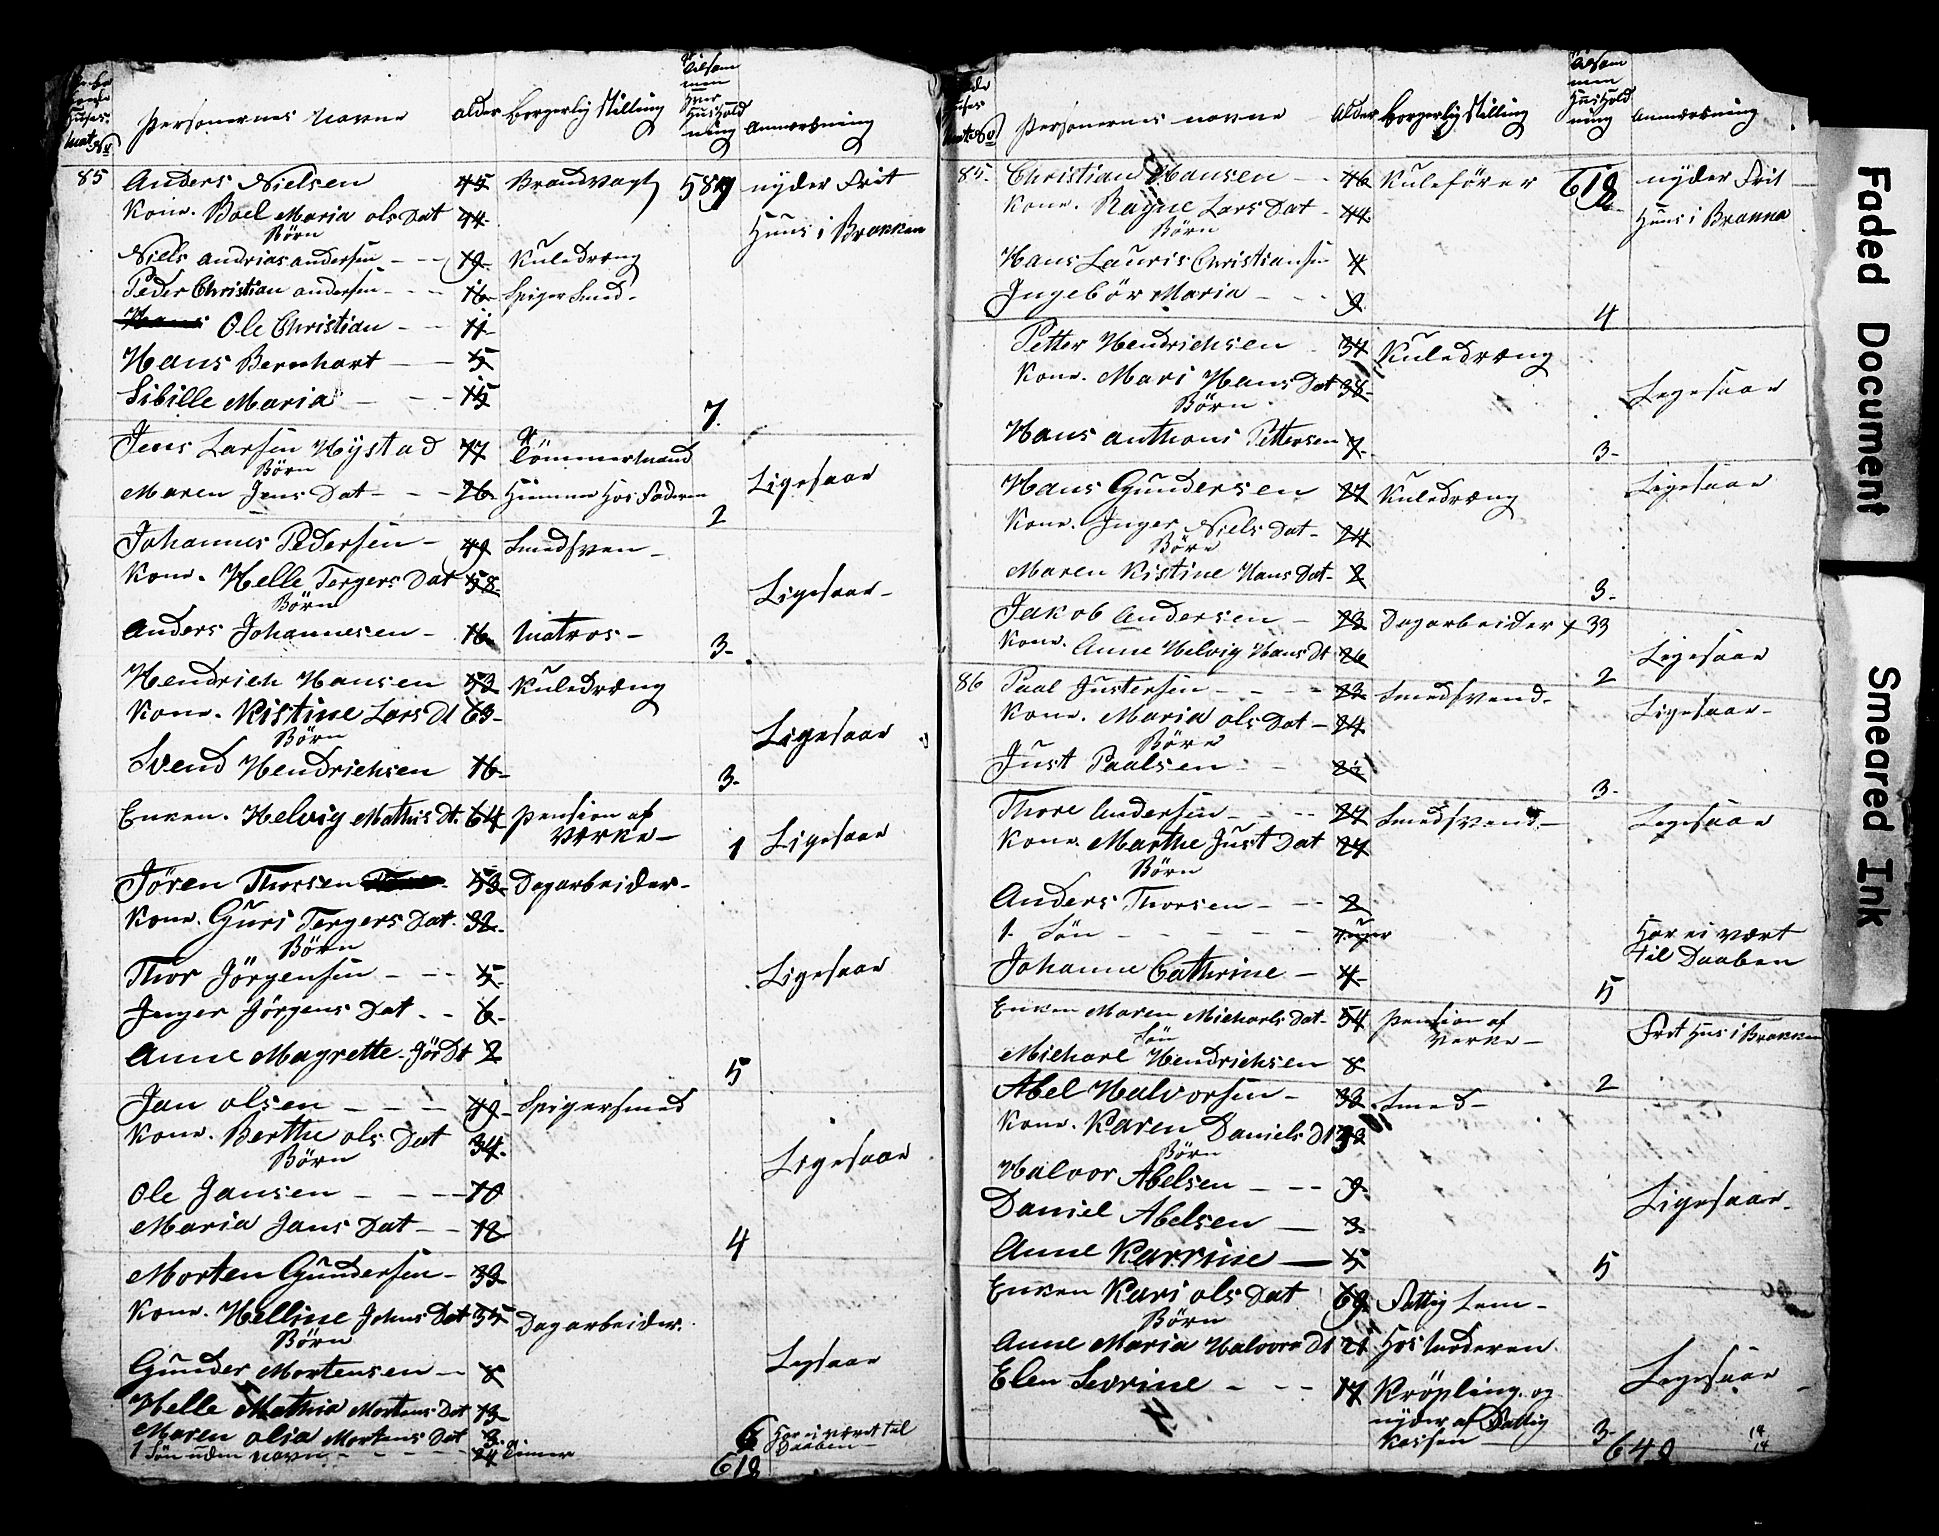 Personernes Navne Alder Borgerlig Stilling Tilsammen Hver Huusholdning Anmærkning
85 Anders Nielsen 45 Brandvagt 587 nyder Frit
Kone. Boel Maria Ols Dat 44 Huus i Brakken
Börn
Niels Andrias Andersen 19 Kuledræng
Peder Christian Andersen 16 Spiger Smed
Ole Christian 11
Hans Bernhart 5
Sibille Maria 15
7.
Jens Larsen Hÿstad 77 Tömmermand
Börn
Maren Jens Dat 26 Hiemme Hos Faderen Ligesaar
2
Johannes Pedersen 49 Smedsven
Kone. Helle Tergers Dat 58 Ligesaar
Börn
Anders Johannesen 16 Matros
3
Hendrich Hansen 53 Kuledræng
Kone. Kistine Lars Dt 63 Ligesaar
Börn
Svend Hendrichsen 16
3
Enken. Helvig Mathis Dt. 64 Pension af
Værke 1 Ligesaar
Jören Thorsen 53 Dagarbeider
Kone. Guri Tergers Dat 32
Börn
Thor Jörgensen 5 Ligesaar
Inger Jörgens Dat 6
Anne Magrette Jör Dt 2
5
Jan Olsen 49 Spigersmed
Kone. Berthe Ols Dat 34
Börn Ligesaar
Ole Jansen 10
Maria Jans Dat 12
4
Morten Gundersen 39
Kone. Helline Johns Dat 35 Dagarbeider
Börn
Gunder Mortensen 8 Ligesaar
Helle Mathia Mortens Dat 13
Maren Olia Mortens Dat 3 6 Har ei været til
1 Sön uden Navn 24 Timer Daaben
618
Personernes Navne Alder Borgerlig Stilling Tilsammen Huusholdning Anmærkning
85 Christian Hansen 46 Kuleförer 618 nyder Frit
Kone. Ragne Lars Dat 44 Huus i Brakka
Börn
Hans Lauris Christiansen 4
Ingebör Maria 9
4
Petter Hendrichsen 34 Kuledræng
Kone. Mari Hans Dat 38 Ligesaar
Börn
Hans Anthoni Pettersen 7
3
Hans Gundersen 27 Kuledræng Ligesaar
Kone. Inger Niels Dat 24
Börn
Maren Kistine Hans Dat 2
3
Jakob Andersen 23 Dagarbeider 33
Kone. Anne Helvig Hans Dt 26 Ligesaar
2
86 Paal Justersen 23 Smedsvend
Kone. Maria Ols Dat 24 Ligesaar
Börn
Just Paalsen
3
Thore Andersen 27 Smedsvend Ligesaar
Kone. Marthe Just Dat 24
Börn
Anders Thorsen 2
1 Sön Har ei vært
til Daaben
Johanne Cathrine 4
5
Enken Maren Michaels Dat 54 Pension af Frit Hus i Brakken
Sön Verke
Michael Hendrichsen 8
2
Abel Halvorsen 33 Smed
Kone. Karen Daniels Dt
Börn
Halvor Abelsen 9
Daniel Abelsen 3 Ligesaar
Anne Karrine 5
5
Enken Kari Ols Dat 69 Fattig Lem
Börn
Anne Maria Halvors Dt 21 Hos Moderen
Elen Sevrine 17 Kröpling og Ligesaar
nyder af Fattig
Kassen 3
640
14
14
Faded Document
Smeared Ink